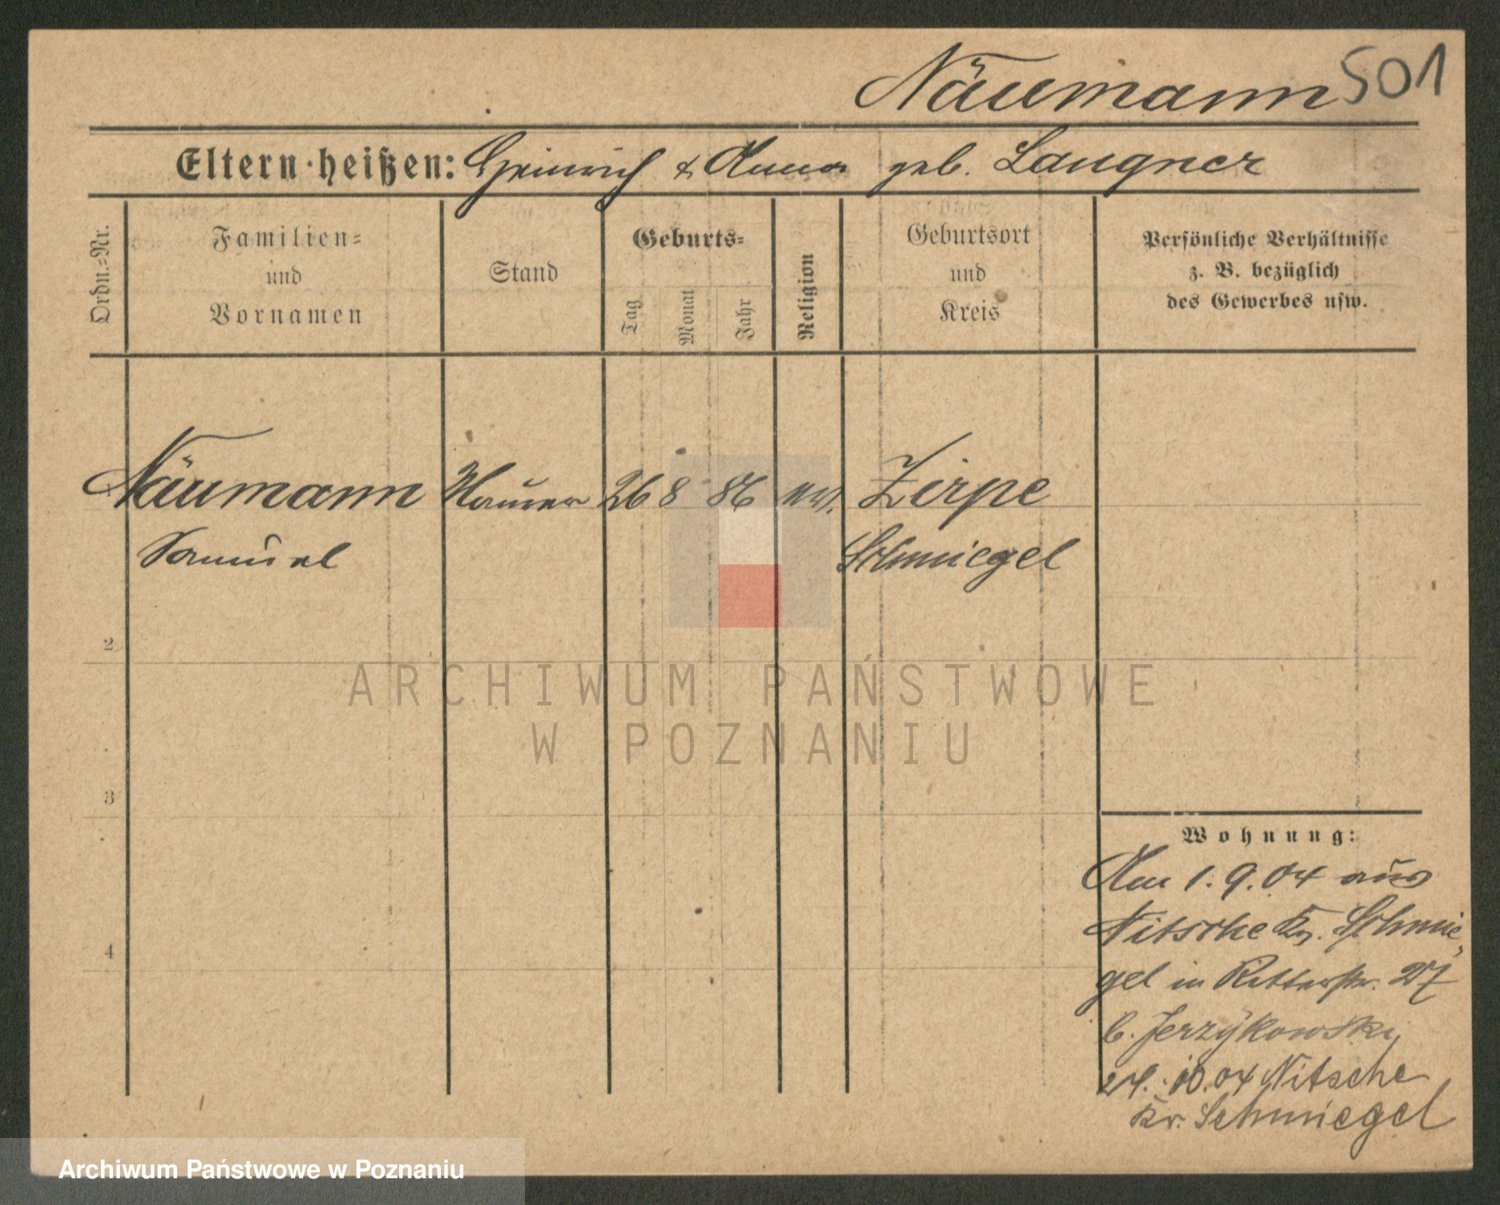 Näumann 501
Eltern heißen: Heinrich & Anna geb. Langner
Ordn.-Nr.
Familien-
und
Vornamen
Stand
Geburts-
Tag
Monat
Jahr
Religion
Geburtsort
und
Kreis
Persönliche Verhältnisse
z. B. bezüglich
des Gewerbes usw.
Näumann Maurer 26 8 86 ev. Zirpe
Samuel Schmiegel
2
ARCHIWUM PAŃSTWOWE
W POZNANIU
3
Wohnung:
Am 1.9.04 aus
Nitsche Kr. Schmie-
4
gel in Ritterstr. 27
b. Jerzykowski
24. 10.04 Nitsche
Kr. Schmiegel
Archiwum Państwowe w Poznaniu